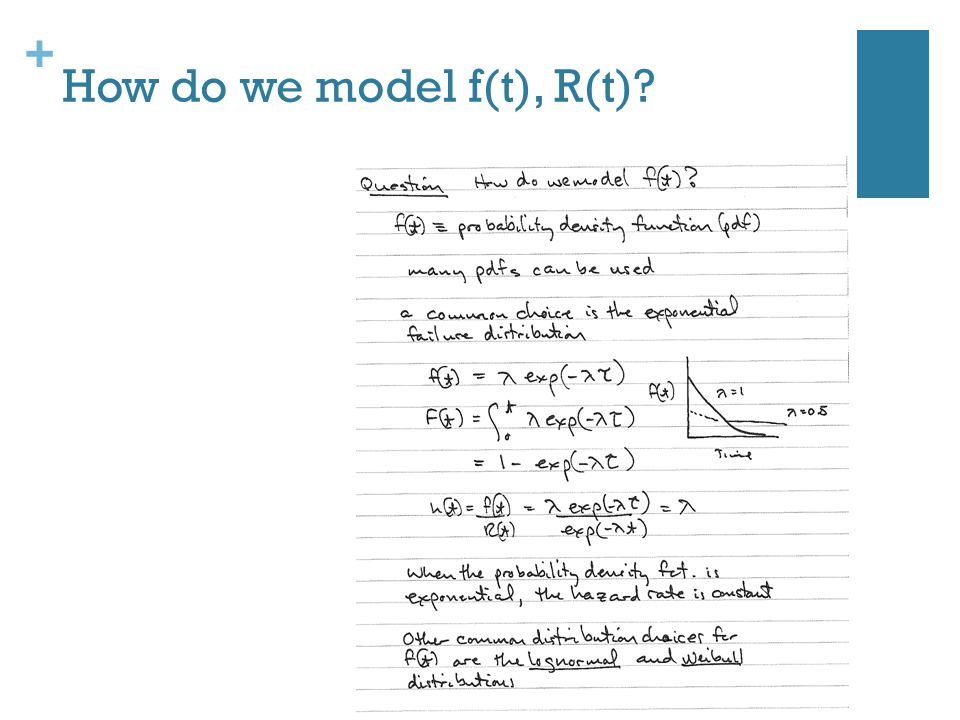 +
How do we model f(t), R(t)?
Question How do we model f(t)?
f(t) ≡ probability density function (pdf)
many pdfs can be used
a common choice is the exponential
failure distribution
f(t) = λ exp(-λτ)
F(t) = ∫₀ᵗ λ exp(-λτ)
= 1 - exp(-λτ)
f(t)
λ=1
λ=0.5
Time
h(t) = f(t)/R(t) = λ exp(-λτ)/exp(-λt) = λ
When the probability density fct. is
exponential, the hazard rate is constant
Other common distribution choices for
f(t) are the lognormal and Weibull
distributions